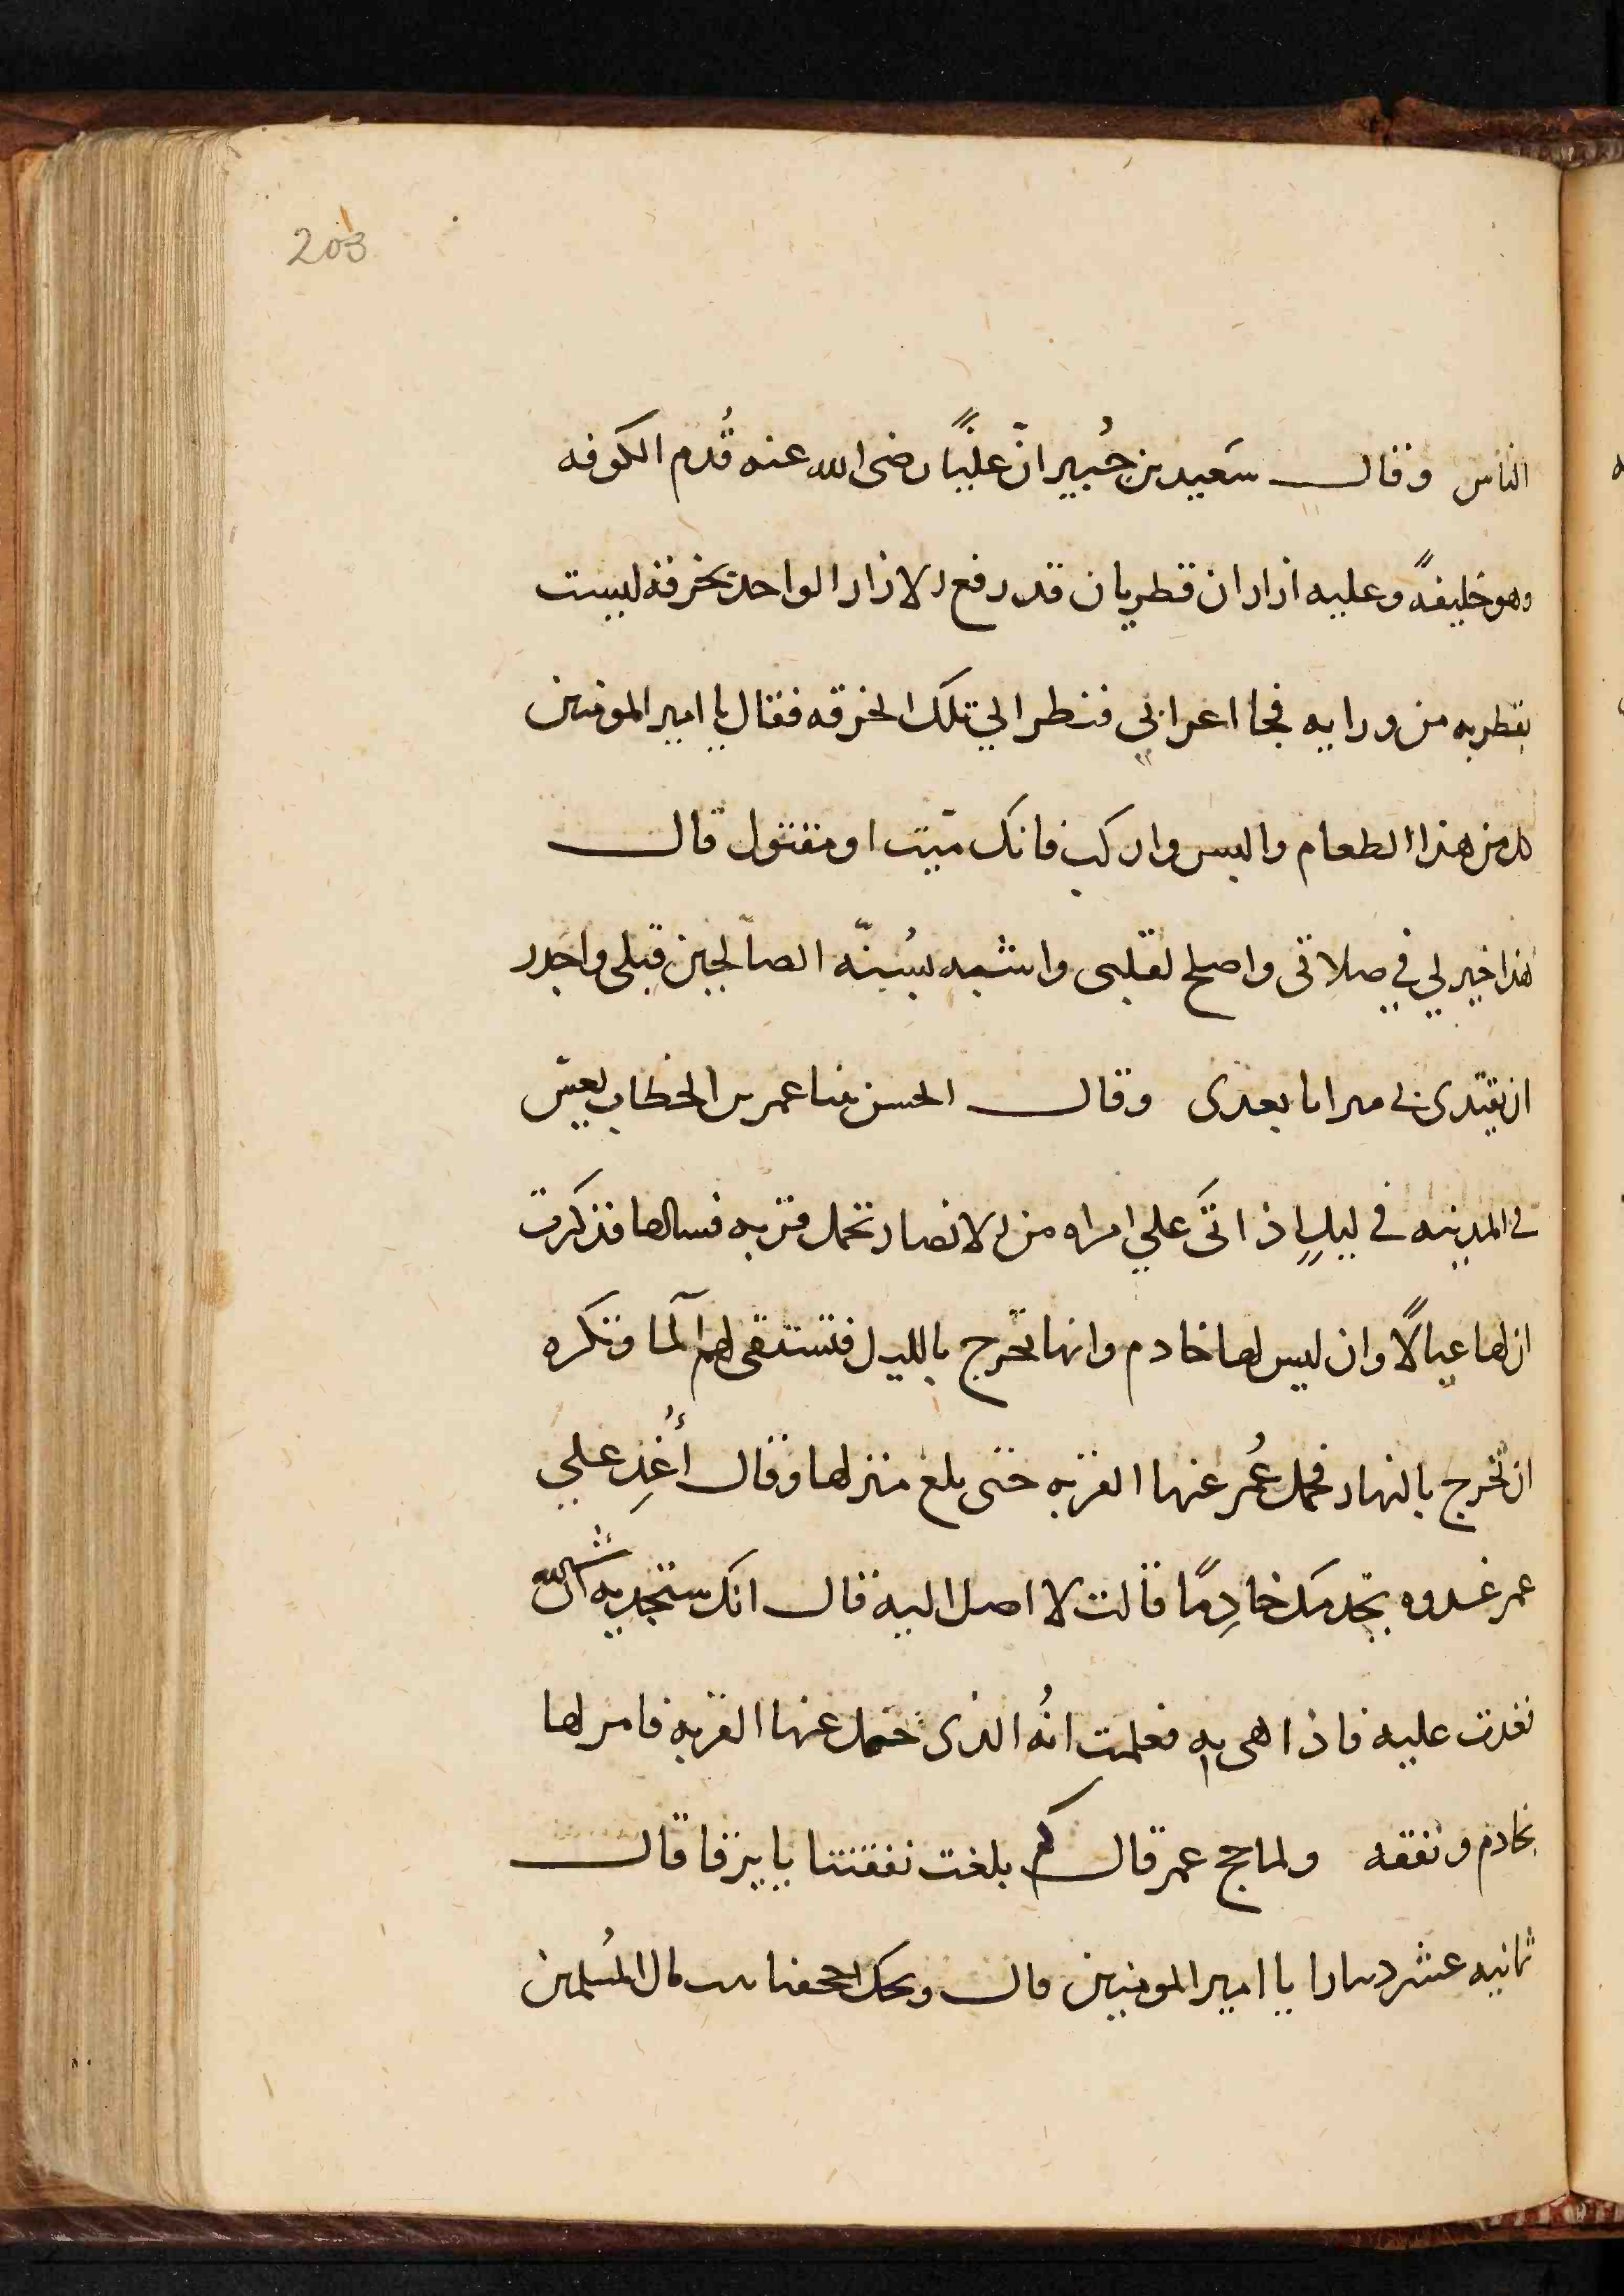 203
الناس وقال سَعيد بن جُبير انّ عليًّا رضى الله عنه قُدم الكوفه
وهو خليفةً وعليه ازاران قطريان قد رقع الازار الواحد بخرقه ليست
بقطريه من ورايه فجا اعرابي فنظر الي تلك الخرقه فقال يا امير المومنين
كل من هذا الطعام والبس واركب فانك ميّت او مقتول قال
هذا خير لي في صلاتى واصلح لقلبى واشبه بسُنّه الصالحين قبلى واجدر
ان يقتدى بى من اتا بعدى وقال الحسن بينا عمر بن الخطاب يعسّ
في المدينه في ليلٍ اذ اتَى علي امراه من الانصار تحمل قربه فسالها فذكرت
ان لها عيالًا وان ليس لها خادم وانها تخرج بالليل فتستقى لهم آلما وتكره
ان تخرج بالنهار فحمل عُمر عنها القربه حتى بلغ منزلها وقال أُغدِ علي
عمر غدوه يخدمك خادِمًا قالت لا اصل اليه قال انك ستجديه ان شا الله
فغدت عليه فاذا هى به فعلمت انُه الذى حمل عنها القربه فامر لها
بخادم ونفقه ولما حج عمر قال كم بلغت نفقتنا يا يرفا قال
ثمانيه عشر دينارا يا امير المومنين قال ويحك اجحفنا بيت مال المُسلمين